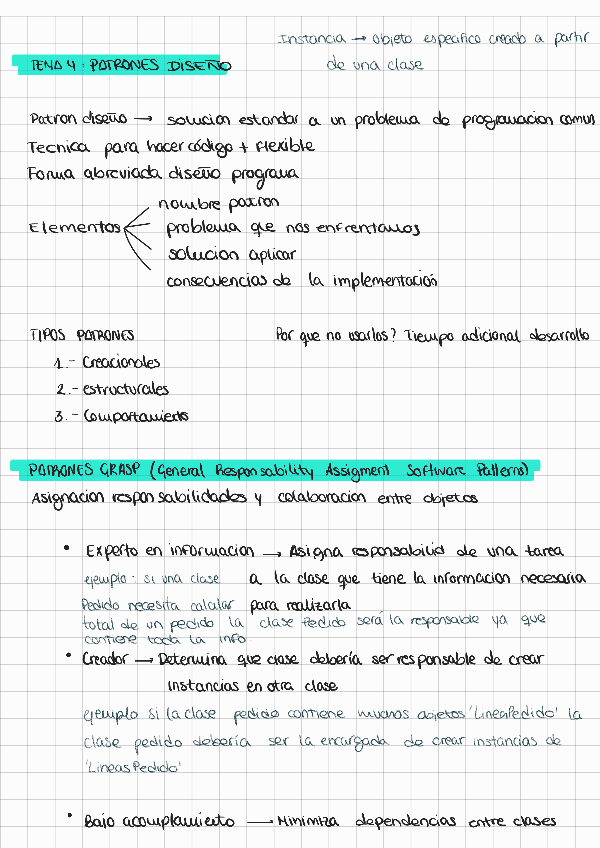 Instancia → objeto especifico creado a partir
de una clase
TEMA 4 : PATRONES DISEÑO
Patron diseño → solucion estandar a un problema de programacion comun
Tecnica para hacer código + flexible
Forma abreviada diseño programa
nombre patron
Elementos
problema que nos enfrentamos
solucion aplicar
consecuencias de la implementación
TIPOS PATRONES
Por que no usarlos? Tiempo adicional desarrollo
1.- Creacionales
2.- estructurales
3.- Comportamiento
PATRONES GRASP (General Responsability Assigment Software Patterns)
Asignacion responsabilidades y colaboracion entre objetos
• Experto en informacion → Asigna responsabilid de una tarea
ejemplo: si una clase a la clase que tiene la informacion necesaria
Pedido necesita calcular para realizarla
total de un pedido la clase Pedido será la responsable ya que
contiene toda la info
• Creador → Determina que clase debería ser responsable de crear
instancias en otra clase
ejemplo si la clase pedido contiene muchos objetos 'LineaPedido' la
clase pedido debería ser la encargada de crear instancias de
'LineasPedido'
• Bajo acomplamiento → Minimiza dependencias entre clases